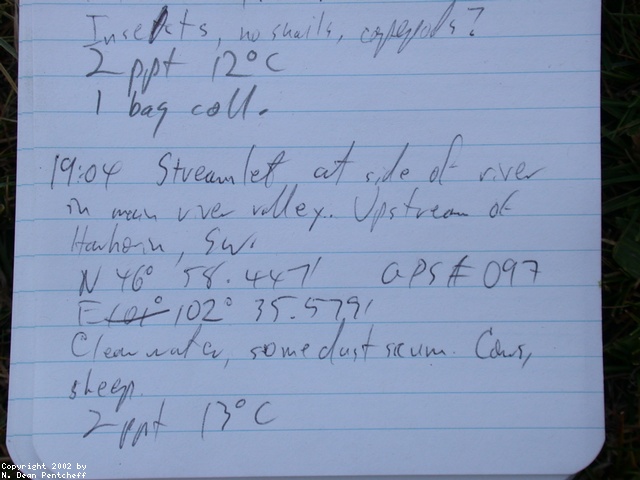 Insects, no snails, copepods?
2 ppt 12°C
1 bag coll.
19:04 Streamlet at side of river
in main river valley. Upstream of
SW.
N 46° 58.447' GPS# 097
E 101° 102° 35.579'
Clean water, some dust scum. Cows,
sheep.
2 ppt 13°C
Copyright 2002 by
N. Dean Pentcheff